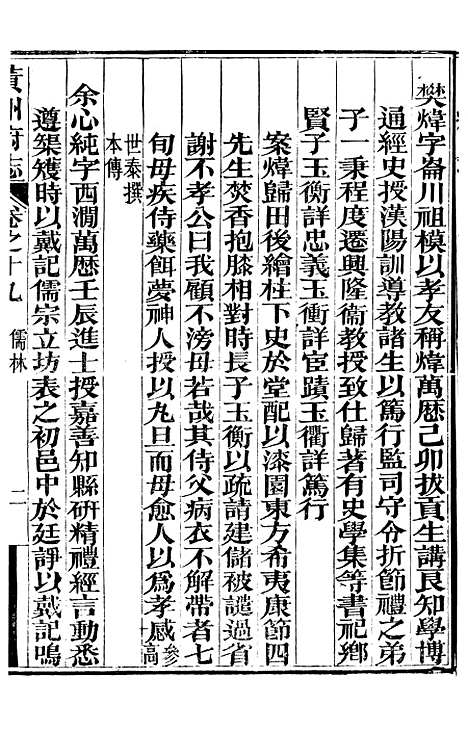 樊煒字崙川祖模以孝友稱煒萬歷己卯拔貢生講良知學博
通經史授漢陽訓導教諸生以篤行監司守令折節禮之弟
子一秉程度遷興隆衞教授致仕歸著有史學集等書祀鄉
賢子玉衡詳忠義玉衝詳宦蹟玉衢詳篤行
案煒歸田後繪柱下史於堂配以漆園東方希夷康節四
先生焚香抱膝相對時長子玉衡以疏請建儲被譴過省
謝不孝公曰我顧不滂母若哉其侍父病衣不解帶者七
旬母疾侍藥餌夢神人授以丸旦而母愈人以爲孝感參高
世泰撰
本傳
余心純字西澗萬歷壬辰進士授嘉善知縣研精禮經言動悉
遵榘矱時以戴記儒宗立坊表之初邑中於廷諍以戴記鳴
黃州府志
卷之十九
儒林
二